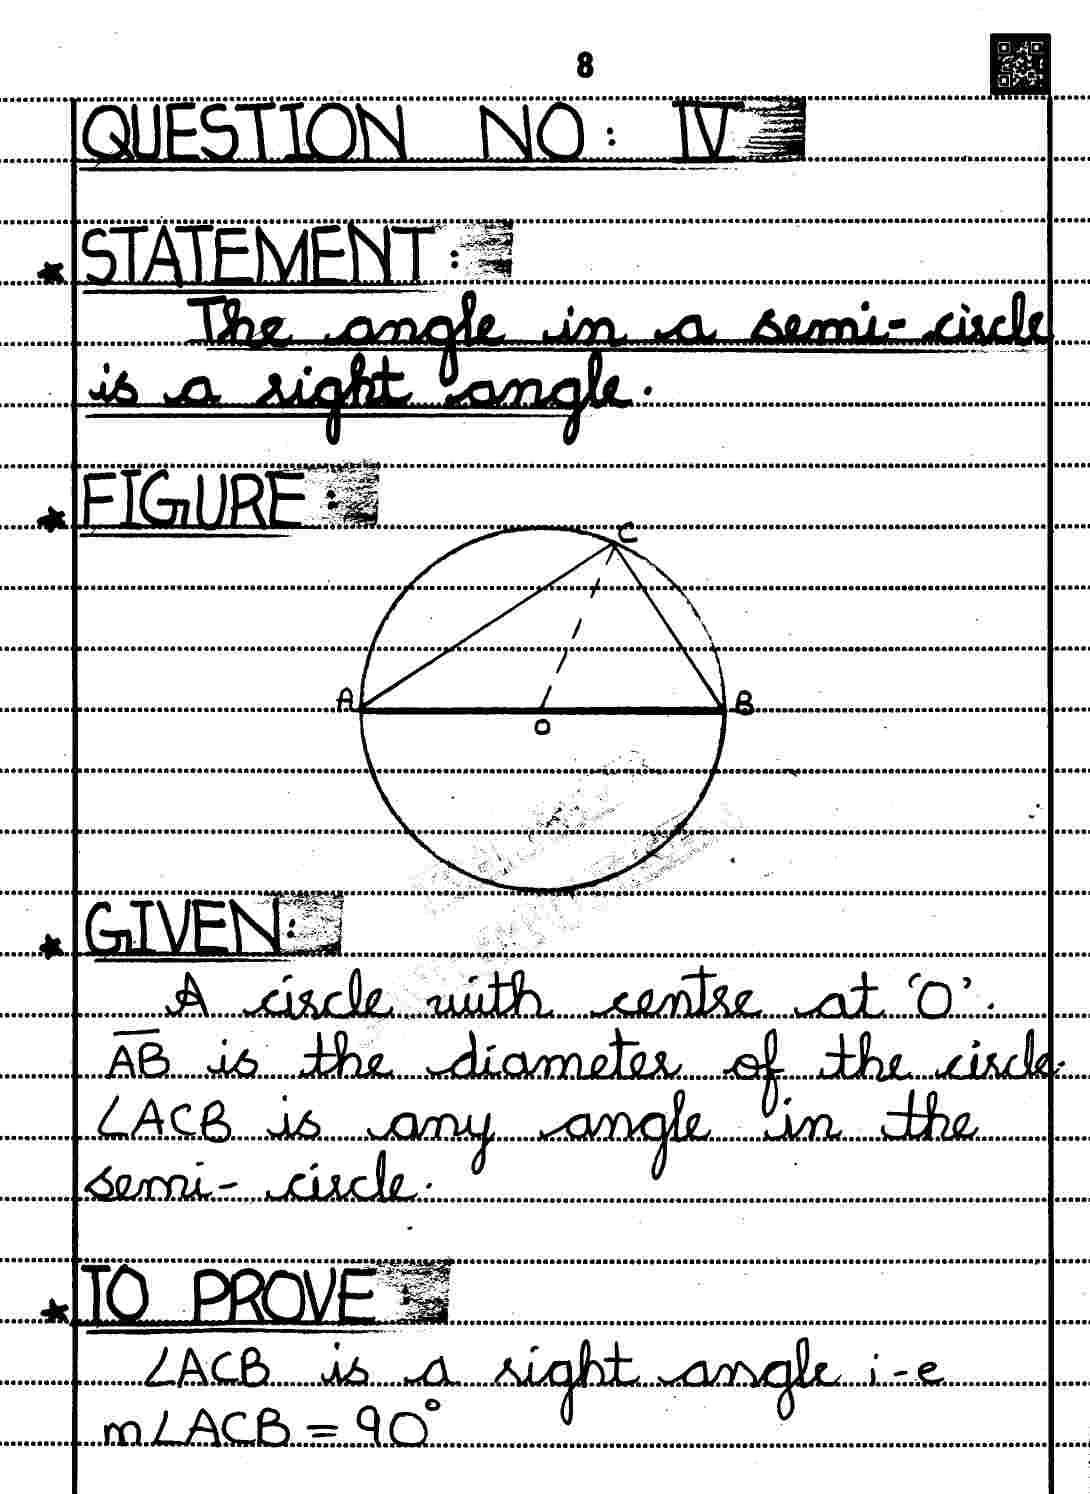 8
QUESTION NO: IV
★ STATEMENT:
The angle in a semi-circle
is a right angle.
★ FIGURE:
C
A B
O
★ GIVEN:
A circle with centre at 'O'.
A̅B̅ is the diameter of the circle.
∠ACB is any angle in the
semi-circle.
★ TO PROVE:
∠ACB is a right angle i-e
m∠ACB = 90°